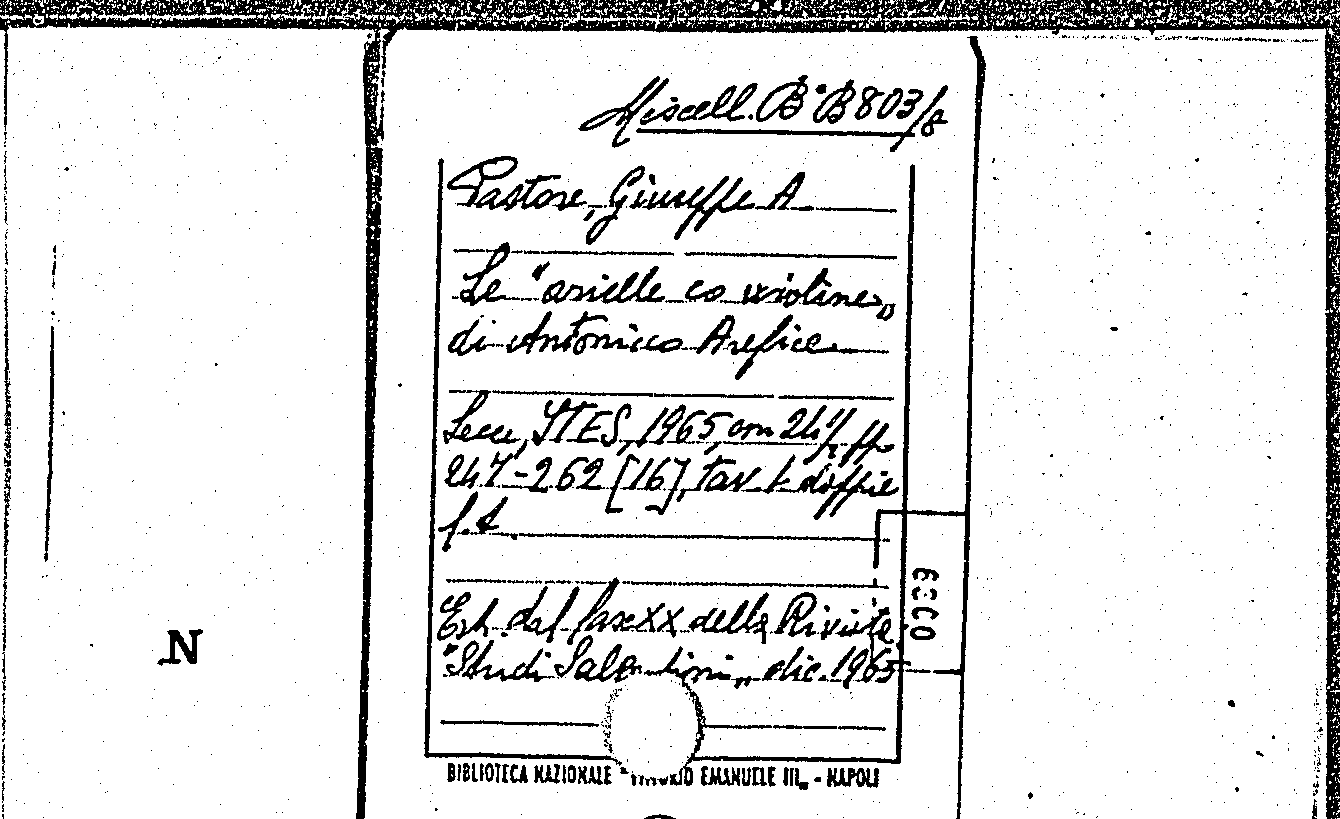 Miscell. B^a B 803/8
Pastore, Giuseppe A.
Le "arielle co violine„
di Antonicco Arefice
Lecce, STES, 1965, cm 24½, pp
247-262 [16], tav. 1 doppie
f.t.
Estr. dal fasc XX della Rivista
"Studi Salentini„ dic. 1965
BIBLIOTECA NAZIONALE "VITTORIO EMANUELE III„ - NAPOLI
N